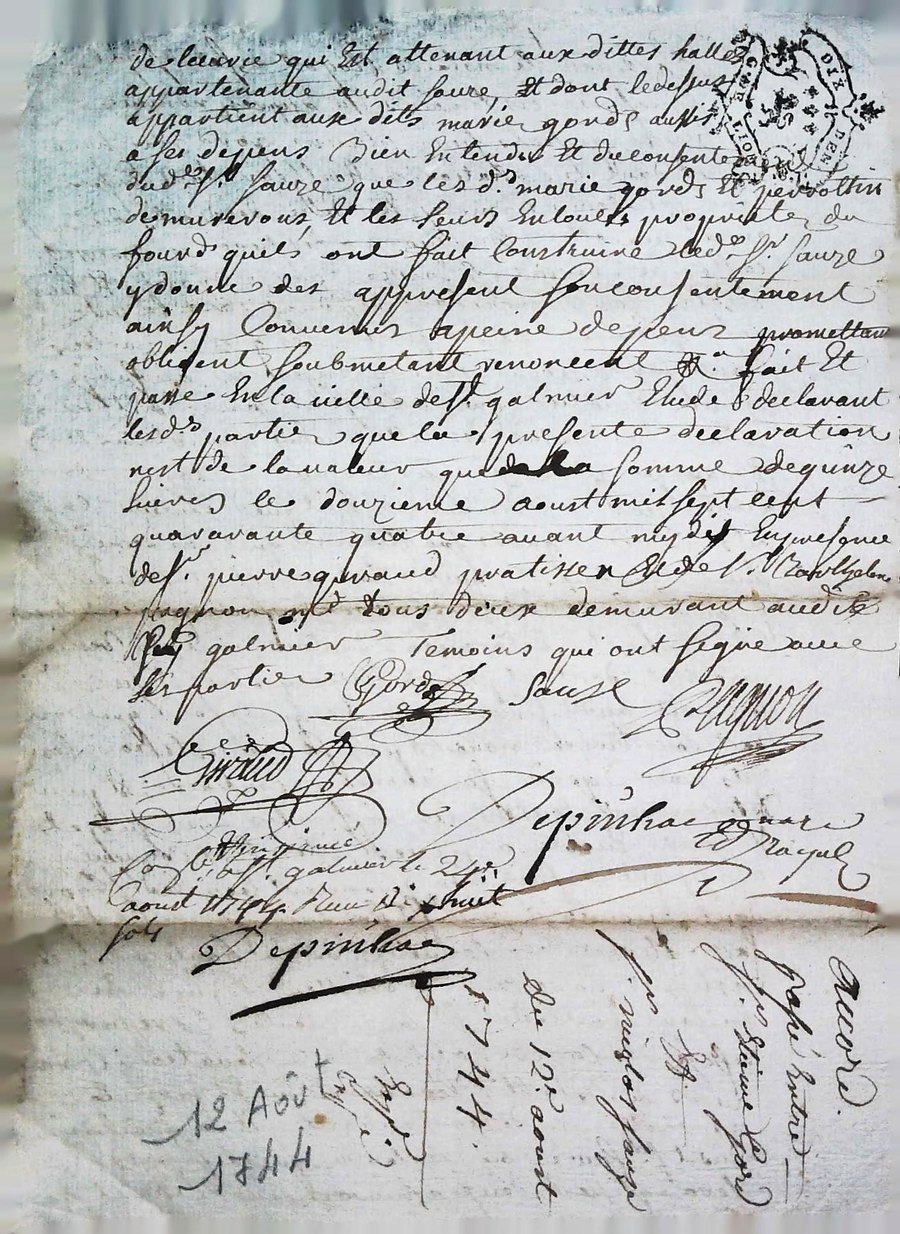 de lecurie qui Est attenant aux dittes halles
appartenante audit sauze, Et dont ledessus
appartient aux dits marie gord aussy
a ses depens Bien Entendu Et du consentement
dud. Sr. Sauze que les ds. marie gord Et perrottin
demureront, Et les leurs En toutte propriete du
fourd quils ont fait Construire led. Sr. Sauze
y donne des appresent son consentement
ainsy Convenus a peine depens promettant
obligent soubmetant renoncent &a. fait Et
passe En la ville de St. galmier Etude declarant
lesds. partie que la presente declaration
nest de la valeur que de la somme de quinze
livres le douzieme aoust mil sept cent
quaravante quatre avant mydy En presence
de Sr. pierre giraud pratissien Et de Sr. Barthelemy
pagnon md. tous deux demurant audit
St galmier Temoins qui ont signe avec
les partie Gord Sauze Pagnon
Giraud
Depinhac nore
Royal
Con.lle a St. galmier le 24e
aoust 1744 Recu dix huit
sols
Depinhac
Accord.
passé Entre
Sr. Etiene Gord
Et
Sr. niclos sauze
du 12e aoust
1744.
Expd
12 Août
1744